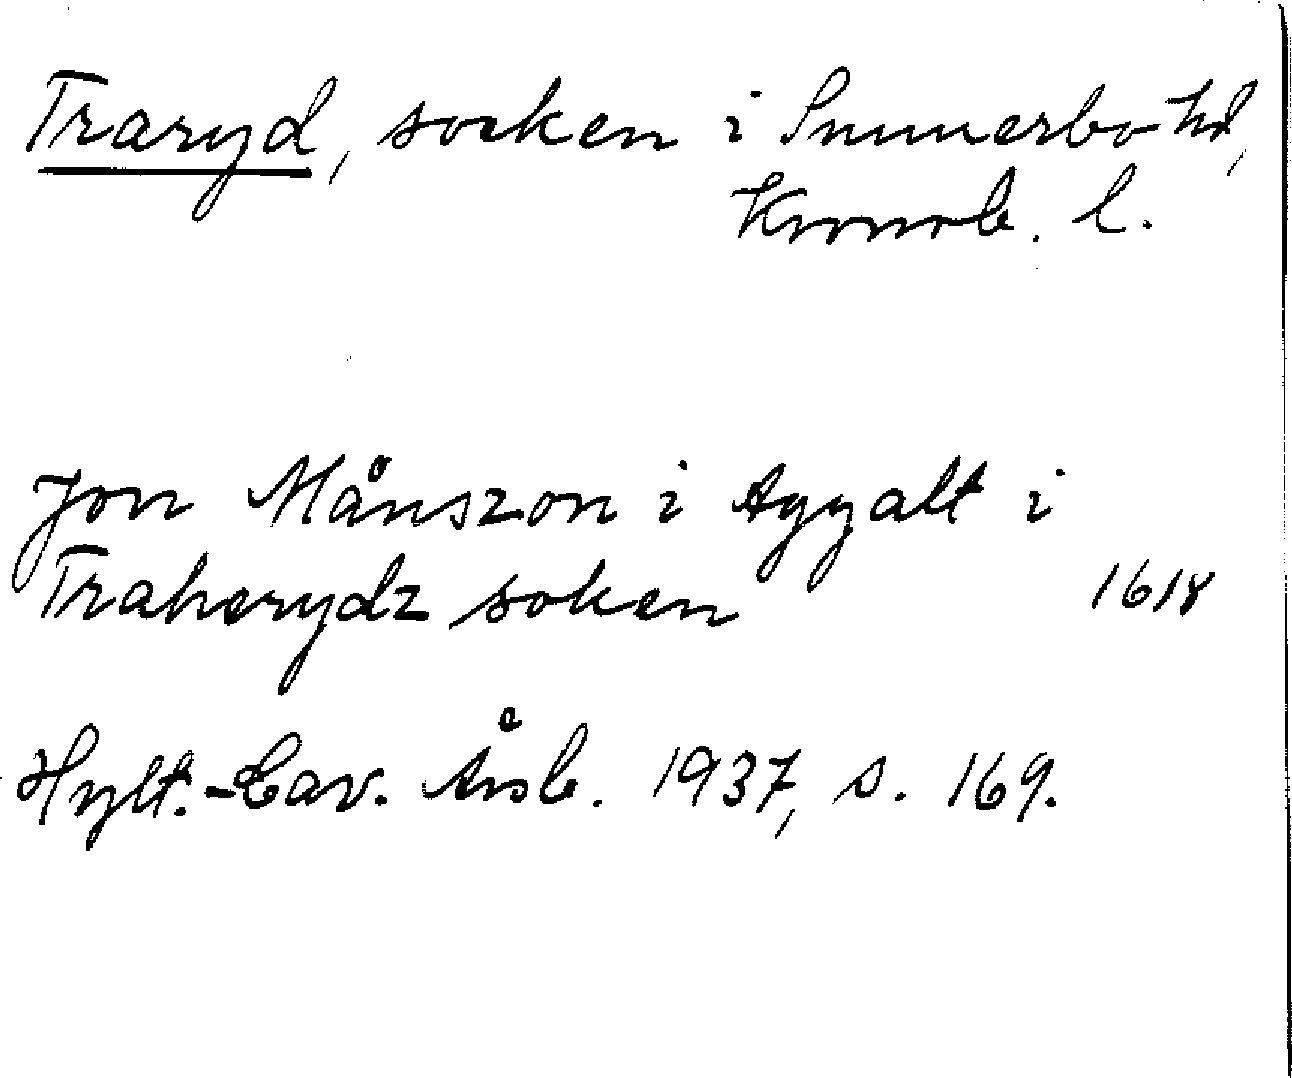 Traryd, socken i Sunnerbo hd,
Kronob. l.
Jon Månszon i Aggalt i
Traherydz soken 1618
Hylt.-Cav. Årsb. 1937, s. 169.